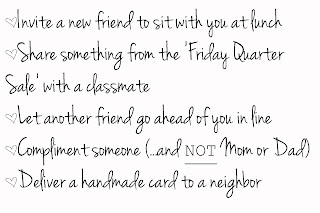 ♡Invite a new friend to sit with you at lunch
♡Share something from the 'Friday Quarter
Sale' with a classmate
♡Let another friend go ahead of you in line
♡Compliment someone (...and NOT Mom or Dad)
♡Deliver a handmade card to a neighbor